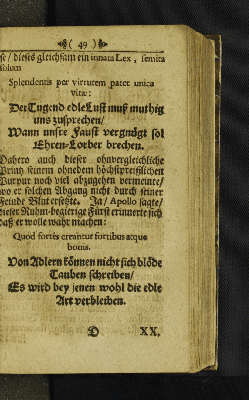 ( 49 )
se / dieses gleichsam ein innata Lex, semita
solum
Splendentis per virtutem patet unica
vitæ:
Der Tugend edle Lust muß muthig
uns zusprechen /
Wann unsre Faust vergnügt sol
Ehren-Lorber brechen.
Dahero auch dieser ohnvergleichliche
Printz seinem ohnedem höchstpreißlichen
Purpur noch viel abzugehen vermeinte/
wo er solchen Abgang nicht durch seiner
Feinde Blut ersetzte. Ja / Apollo sagte/
dieser Ruhm-begierige Fürst erinnerte sich
daß er wolle wahr machen:
Quod fortes creantur fortibus atque
bonis.
Von Adlern können nicht sich blöde
Tauben schreiben/
Es wird bey jenen wohl die edle
Art verbleiben.
D XX.